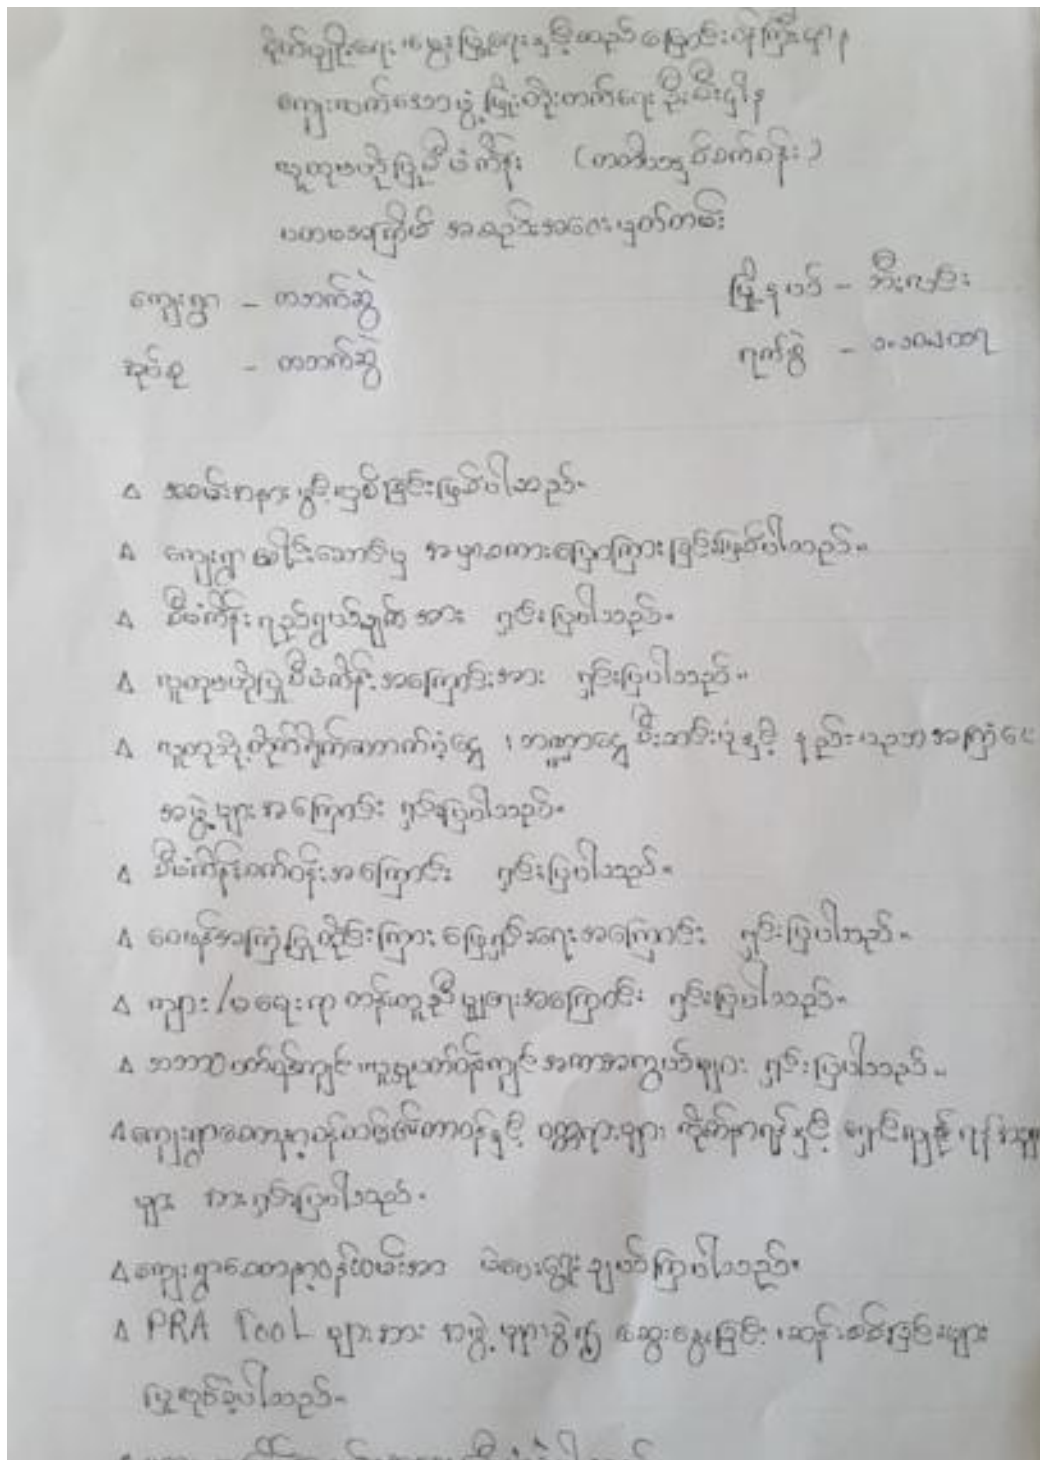 စိုက်ပျိုးရေး၊ မွေးမြူရေးနှင့်ဆည်မြောင်းဝန်ကြီးဌာန
ကျေးလက်ဒေသဖွံ့ဖြိုးတိုးတက်ရေးဦးစီးဌာန
လူထုဗဟိုပြုစီမံကိန်း (တတိယနှစ်စက်ဝန်း)
ပထမအကြိမ် အစည်းအဝေးမှတ်တမ်း
ကျေးရွာ – တဘက်ဆွဲ
မြို့နယ် – ဘီးလင်း
အုပ်စု – တဘက်ဆွဲ
ရက်စွဲ –
Δ အခမ်းအနားဖွင့်လှစ်ခြင်းဖြစ်ပါသည်။
Δ ကျေးရွာခေါင်းဆောင်မှ အမှာစကားပြောကြားခြင်းဖြစ်ပါသည်။
Δ စီမံကိန်းရည်ရွယ်ချက်အား ရှင်းပြပါသည်။
Δ လူထုဗဟိုပြုစီမံကိန်းအကြောင်းအား ရှင်းပြပါသည်။
Δ လူထုသို့တိုက်ရိုက်ထောက်ပံ့ငွေ ၊ ဘဏ္ဍာငွေစီးဆင်းပုံနှင့် နည်းပညာအကြံပေး
အဖွဲ့များအကြောင်း ရှင်းပြပါသည်။
Δ စီမံကိန်းစက်ဝန်းအကြောင်း ရှင်းပြပါသည်။
Δ ဝေဖန်အကြံပြုတိုင်ကြားဖြေရှင်းရေးအကြောင်း ရှင်းပြပါသည်။
Δ ကျား/မရေးရာ တန်းတူညီမျှရေးအကြောင်း ရှင်းပြပါသည်။
Δ သဘာဝပတ်ဝန်းကျင်၊ လူမှုပတ်ဝန်းကျင်အကာအကွယ်များ ရှင်းပြပါသည်။
Δ ကျေးရွာစေတနာ့ဝန်ထမ်းတာဝန်နှင့် ဝတ္တရားများ၊ လိုက်နာရန်နှင့် ရှောင်ရန်
များ အားရှင်းပြပါသည်။
Δ ကျေးရွာစေတနာ့ဝန်ထမ်းအား မဲပေးရွေးချယ်ကြပါသည်။
Δ PRA TooL များအား အဖွဲ့များခွဲ၍ ဆွေးနွေးခြင်း၊ ဆန်းစစ်ခြင်းများ
ပြုလုပ်ခဲ့ပါသည်။